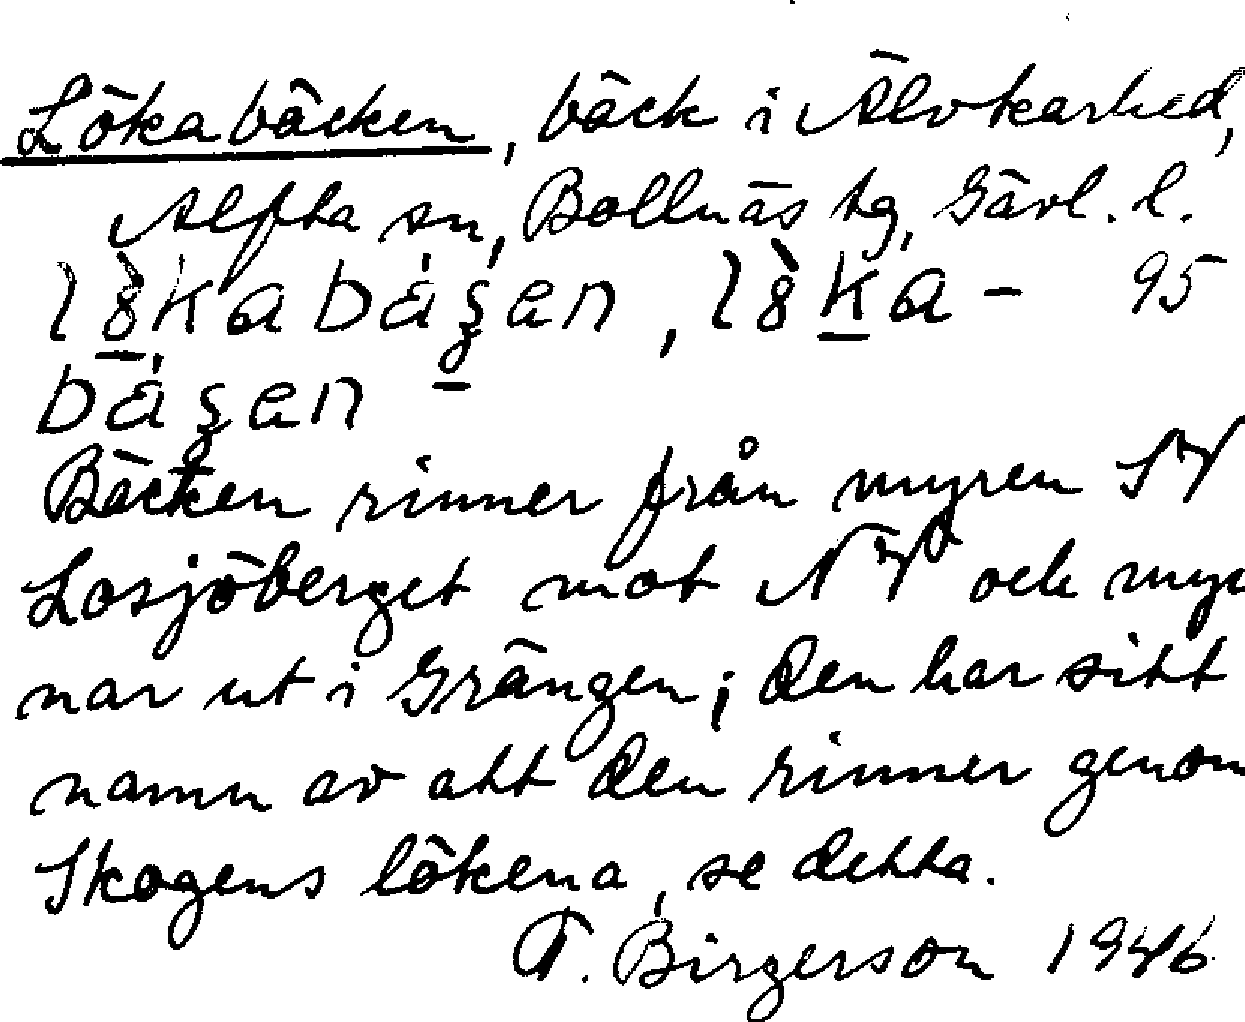 Lökabäcken, bäck i Älvkarhed,
Alfta sn, Bollnäs tg, Gävl. l.
95
Bäcken rinner från myren SV
Losjöberget mot NV och myn
nar ut i Grängen; den har sitt
namn av att den rinner genom
Skogens lökena, se detta.
T. Birgerson 1946